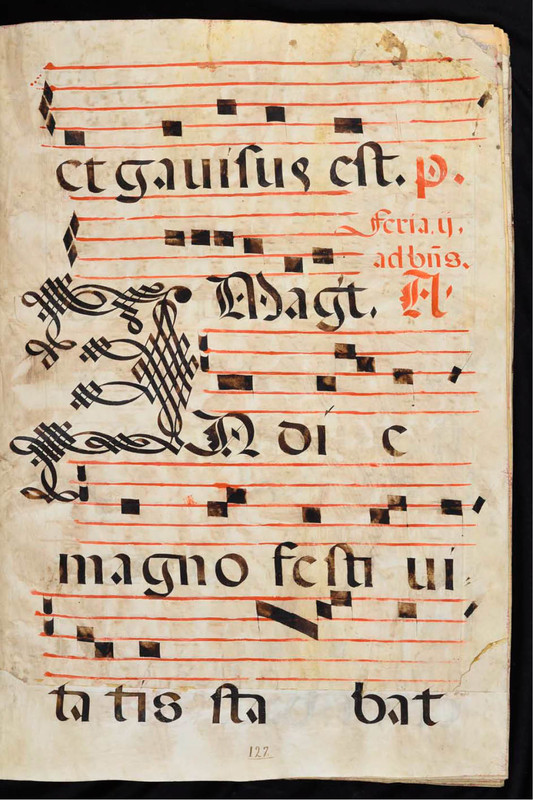 et gauisus est. p.
feria. ij.
ad bñs.
Magt. A.
IN di e
magno festi ui
ta tis sta bat
127